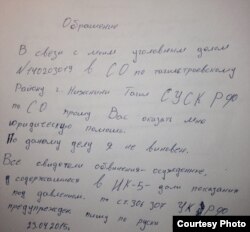 Обращение
В связи с моим уголовным делом
№140203019 в СО по тагилстроевскому
Району г. Нижний Тагил СУСК РФ
по СО прошу Вас оказать мне
юридическую помощь.
По данному делу Я не виновен.
Все свидетели обвинения - осужденные,
содержащиеся в ИК-5 - дали показания
под давлением. по ст. 306 307 УК РФ
предупрежден пишу по руски
23.04.2015.
Courtesy Photo